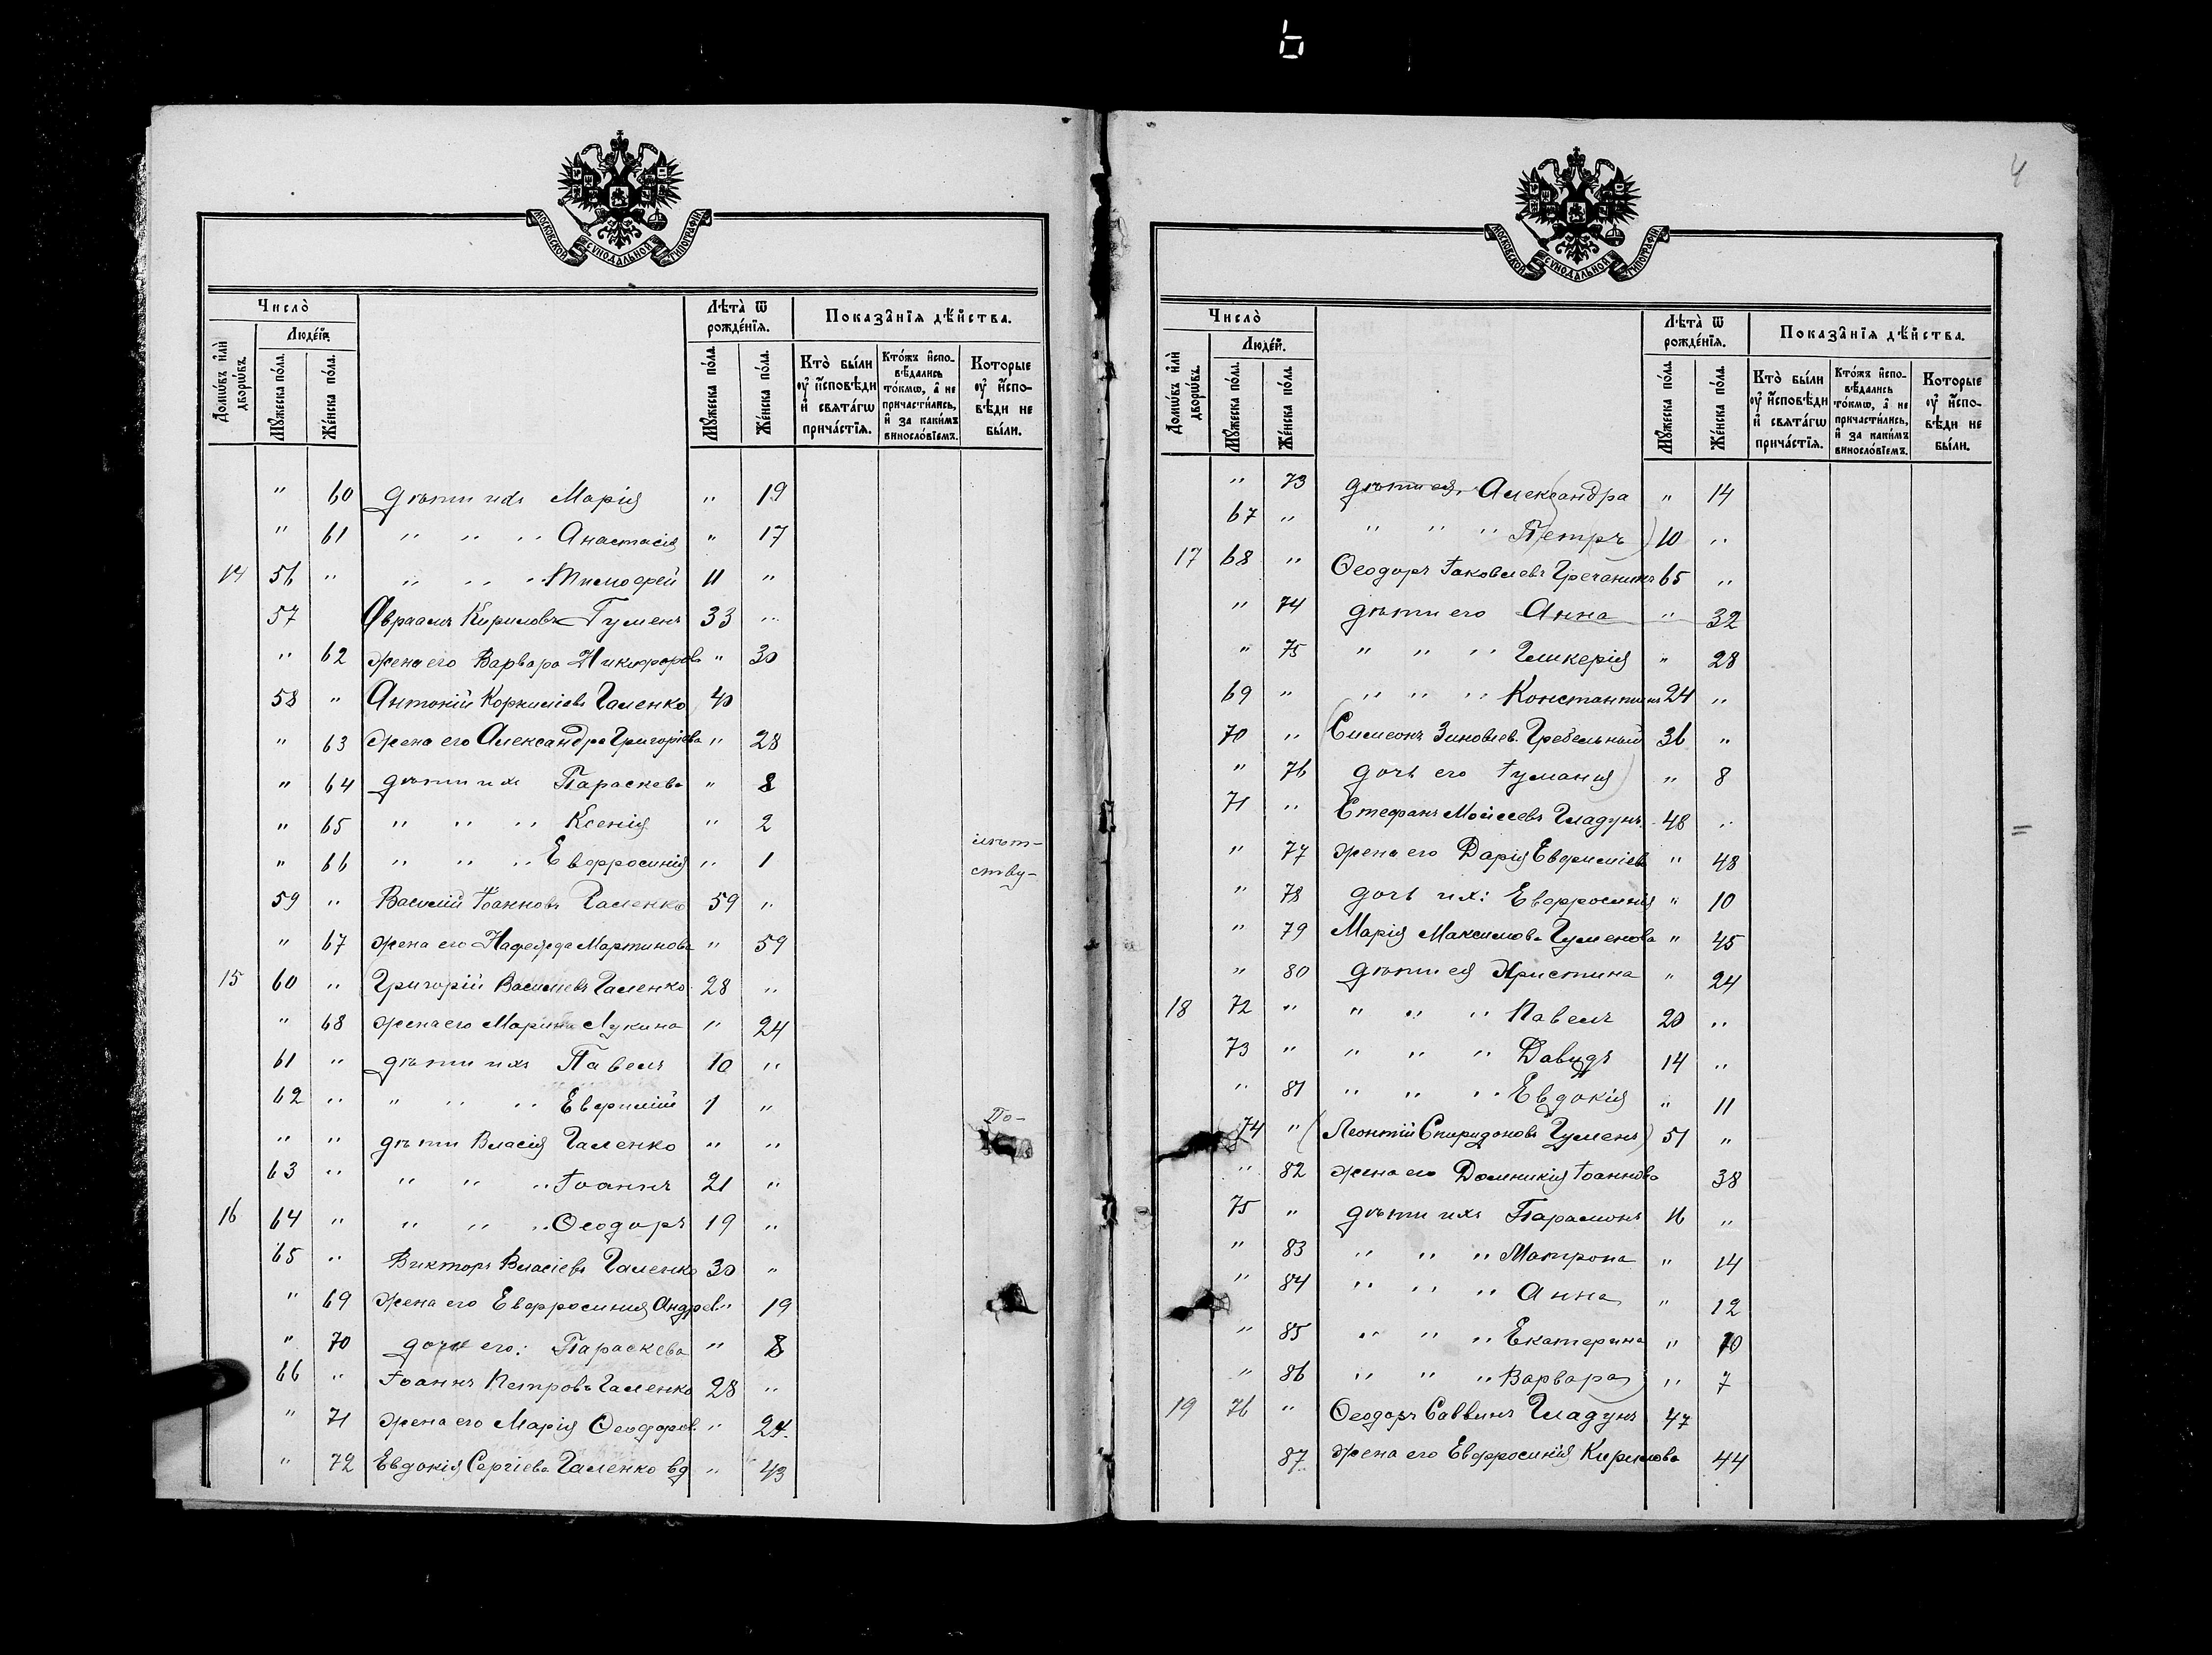 6
МОСКОВСКОЙ СѴНОДАЛЬНОЙ ТИПОГРАФІИ
Число̀
Людє́й.
Домѡ́въ и҆лѝ дворѡ́въ.
Мꙋ́жеска по́ла.
Же́нска по́ла.
Лѣ́та ѿ рожде́нїѧ.
Мꙋ́жеска по́ла.
Же́нска по́ла.
Показа̑нїѧ дѣ́йства.
Кто̀ бы́ли ᲂу҆ и҆́сповѣди и҆ свѧта́гѡ прича́стїѧ.
Кто́жъ и҆спо-вѣ́дались то́кмѡ, а҆ не причасти́лись, и҆ за каки́мъ винослⷪ҇о́вїемъ.
Которые ᲂу҆ и҆́спо-вѣди не бы́ли.
" 60 дѣти ихъ Марія " 19
" 61 " " " Анастасія " 17
14 56 " " " " Тимофей 11 "
57 Авраамъ Кириловъ Гуменъ 33 "
" 62 жена его Варвара Никифоров " 30
58 " Антоній Корниліевъ Галенко 40
" 63 жена его Александра Григоріева " 28
" 64 дѣти ихъ Параскева " 8
" 65 " " " Ксенія " 2
" 66 " " " Евфросинія " 1
59 " Василій Іоанновъ Галенко 59 "
" 67 жена его Надежда Мартинова " 59
15 60 " Григорій Василіевъ Галенко 28 "
" 68 жена его Марина Лукина " 24
61 " дѣти ихъ Павелъ 10 "
62 " " " " Евфимій 1 "
" " дѣти Власія Галенко " "
По-
63 " " " " Іоаннъ 21 "
16 64 " " " " Ѳеодоръ 19 "
65 " Викторъ Власіевъ Галенко 30 "
" 69 жена его Евфросинія Андрев " 19
" 70 дочь его: Параскева " 8
66 " Іоаннъ Петровъ Галенко 28 "
" 71 жена его Марія Ѳеодоров. " 24.
" 72 Евдокія Сергіева Галенко вд " 43
4
МОСКОВСКОЙ СѴНОДАЛЬНОЙ ТИПОГРАФІИ
Число̀
Людє́й.
Домѡ́въ и҆лѝ дворѡ́въ.
Мꙋ́жеска по́ла.
Же́нска по́ла.
Лѣ́та ѿ рожде́нїѧ.
Мꙋ́жеска по́ла.
Же́нска по́ла.
Показа̑нїѧ дѣ́йства.
Кто̀ бы́ли ᲂу҆ и҆́сповѣди и҆ свѧта́гѡ прича́стїѧ.
Кто́жъ и҆спо-вѣ́дались то́кмѡ, а҆ не причасти́лись, и҆ за каки́мъ винослⷪ҇о́вїемъ.
Которые ᲂу҆ и҆́спо-вѣди не бы́ли.
" 73 дѣти ея, Александра " 14
67 " " " " Петръ) 10 "
17 68 " Ѳеодоръ Іаковлевъ Гречанинъ 65 "
" 74 дѣти его Анна " 32
" 75 " " " Гликерія " 28
69 " " " " Константинъ 24 "
70 " (Симеонъ Зиновіев. Гребельный 36 "
" 76 дочь его Іуліанія) " 8
71 " Стефанъ Моисеевъ Гладунъ. 48 "
" 77 жена его Дарія Евфиміева " 48
" 78 дочь ихъ: Евфросинія " 10
" 79 Марія Максимова Гуменова " 45
" 80 дѣти ея Христина " 24
18 72 " " " " Павелъ 20 "
73 " " " " Давидъ 14 "
" 81 " " " Евдокія " 11
74 " (Леонтій Спиридоновъ Гуменъ) 51 "
" 82 жена его Домникія Іоаннова 38
75 " дѣти ихъ Парамонъ 16 "
" 83 " " " Матрона " 14
" 84 " " " Анна " 12
" 85 " " " Екатерина " 10
" 86 " " " Варвара) " 7
19 76 " Ѳеодоръ Саввинъ Гладунъ 47
87 жена его Евфросинія Кирилова 44